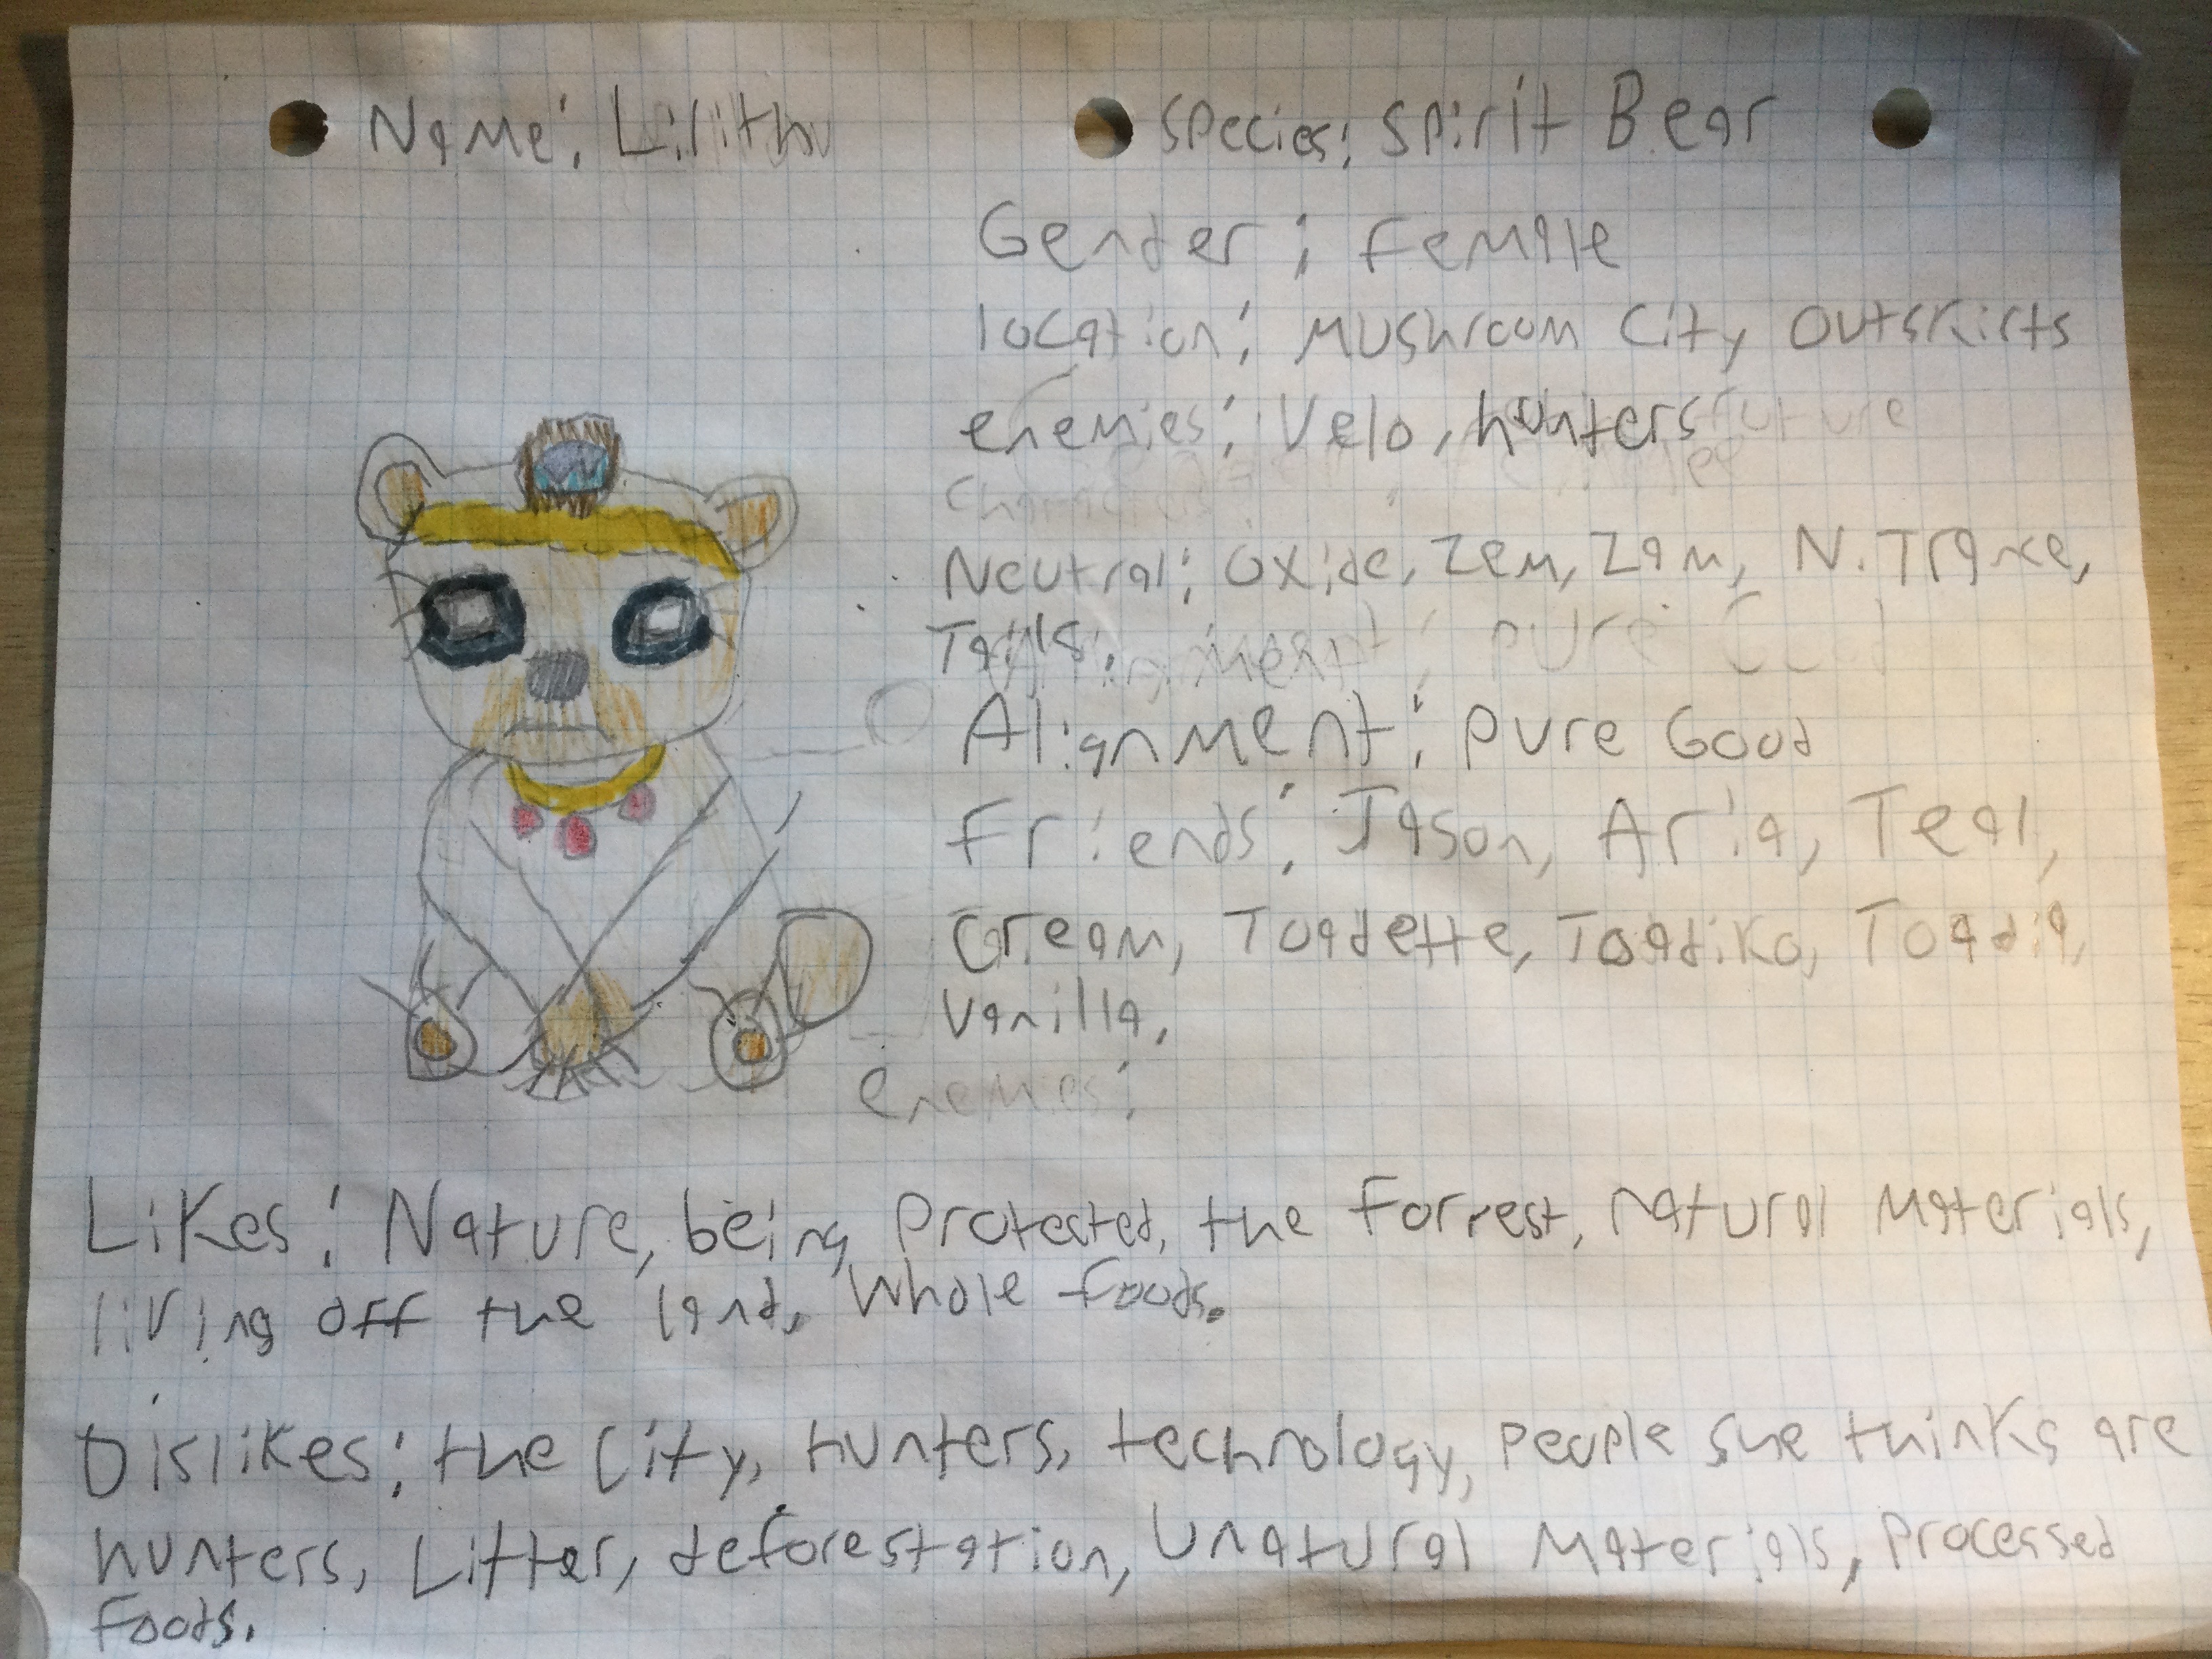 Name: Lilith
Species: Spirit Bear
Gender: Female
location: Mushroom City Outskirts
enemies: Velo, hunters future
Neutral: Oxide, Zem, Zam, N. Trance,
Tails.
Alignment: pure Good
Alignment: Pure Good
Friends: Jason, Aria, Teal,
Cream, Toadette, Toadiko, Toadia,
Vanilla,
enemies:
Likes: Nature, being Protected, the Forrest, natural Materials,
living off the land, Whole foods.
Dislikes: the City, Hunters, technology, People she thinks are
hunters, Litter, deforestation, Unatural Materials, Processed
Foods.